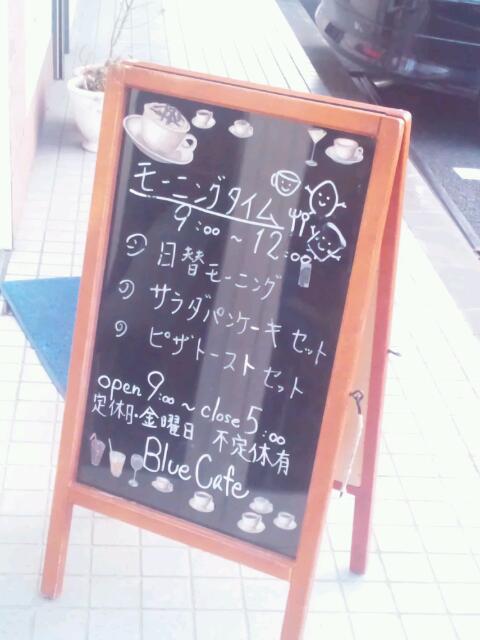 モーニングタイム
9:00～12:00
日替モーニング
サラダパンケーキ セット
ピザトースト セット
open 9:00～close 5:00
定休日・金曜日 不定休有
Blue Cafe